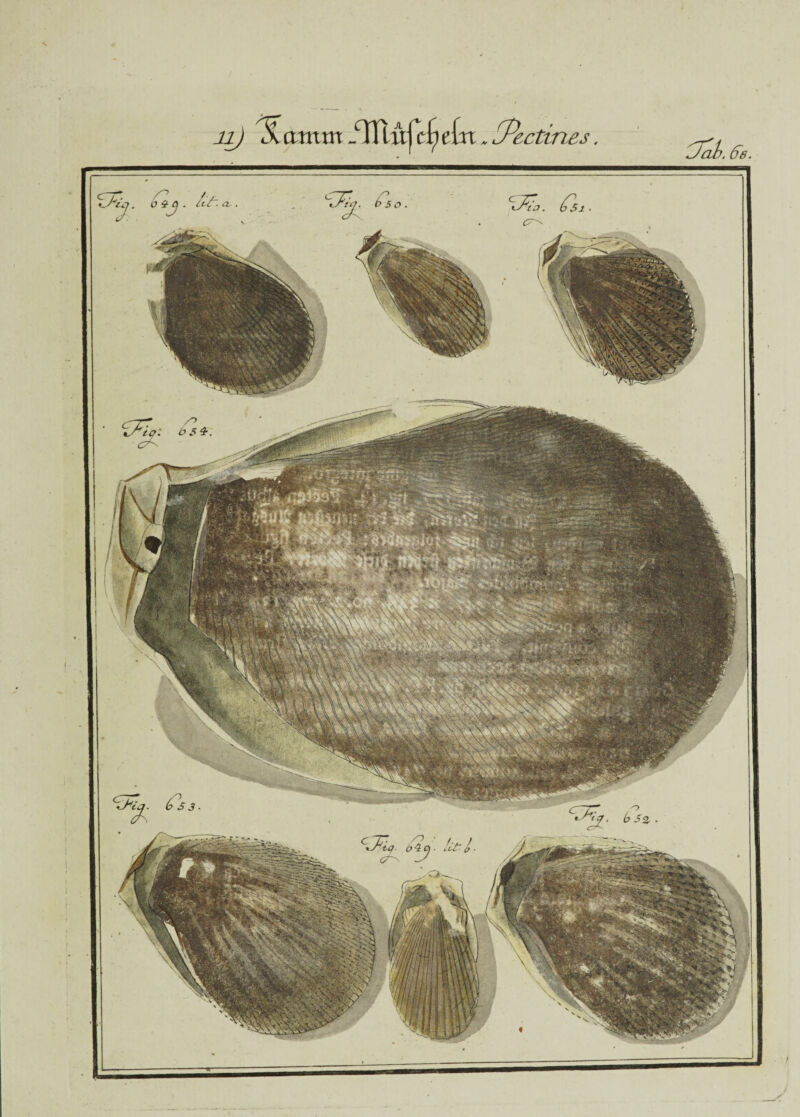 11) Kamm-Mûscheln. Pectines.
Tab. 68.
Fig. 649. lit. a.
Fig. 650.
Fig. 651.
Fig: 654.
Fig. 653.
Fig. 652.
Fig. 649. lit b.